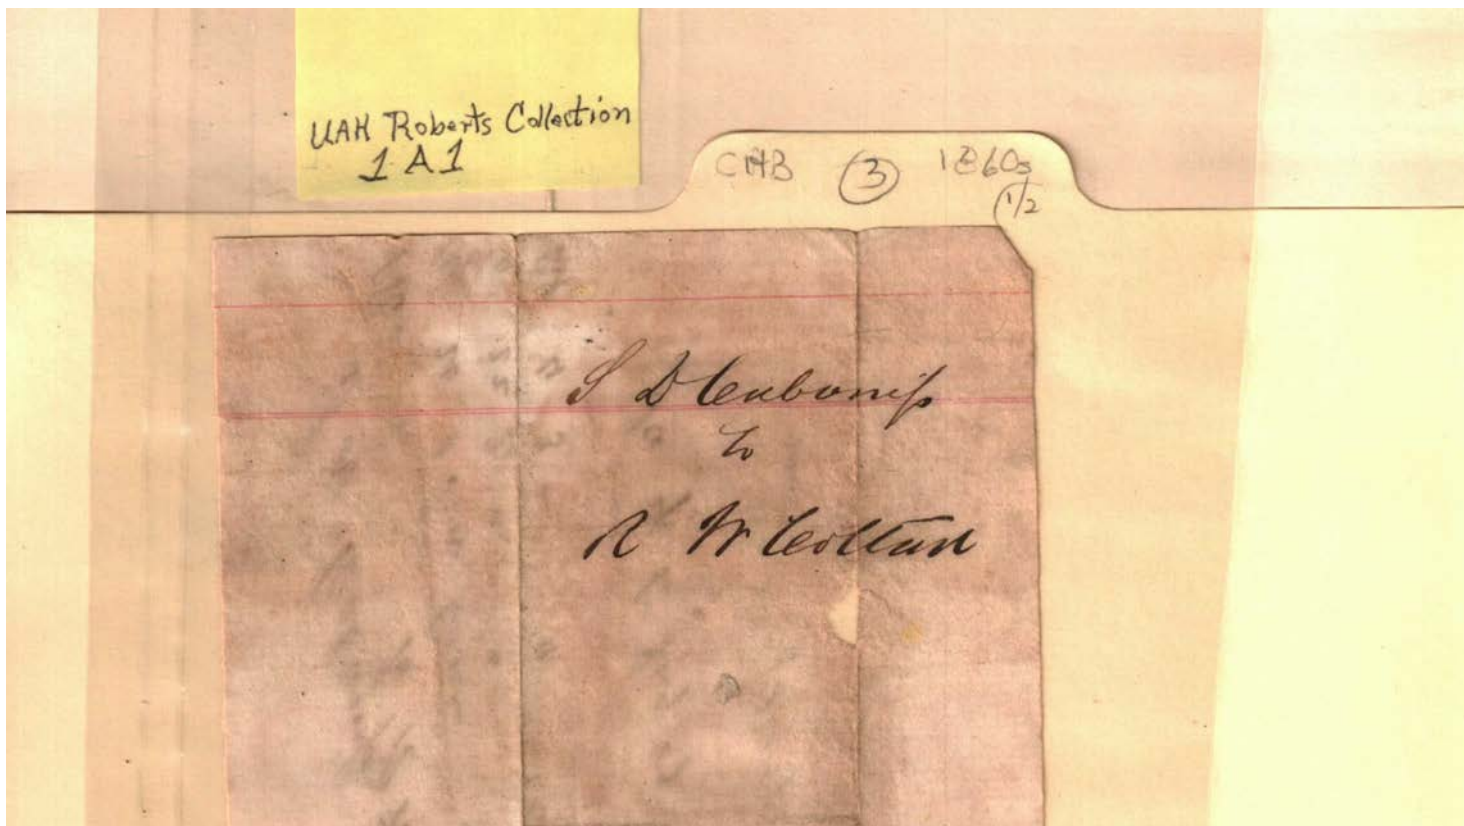 UAH Roberts Collection
1 A 1
CHB ③ 1860s
1/2
S D Cabaniss
to
R W Coltart